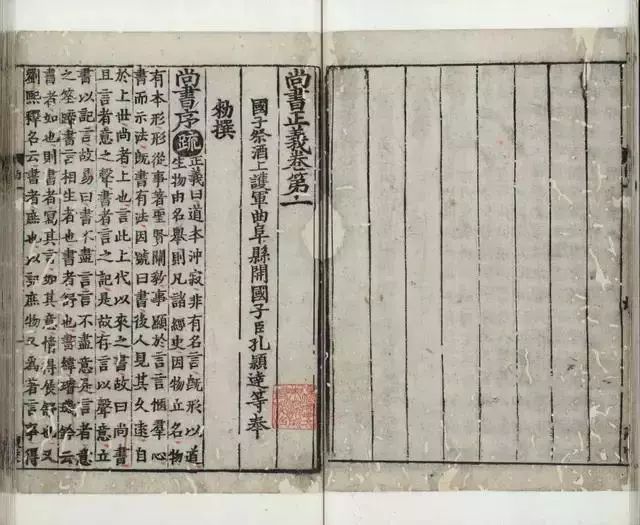 尚書正義卷第一
國子祭酒上護軍曲阜縣開國子臣孔穎達等奉
勑撰
尚書序 疏 正義曰道本沖寂非有名言既形以道
生物由名舉則凡諸經史因物立名物
有本形形從事著聖賢闡教事顯於言言愜羣心
書而示法既書有法因號曰書後人見其久遠自
於上世尚者上也言此上代以來之書故曰尚書
且言者意之聲書者言之記是故存言以聲意立
書以記言故易曰書不盡言言不盡意是言者意
之筌蹄書言相生者也書者舒也書緯璿璣鈐云
書者如也則書者寫其言如其意情得展舒也又
劉熙釋名云書者庶也以記庶物又為著言事得